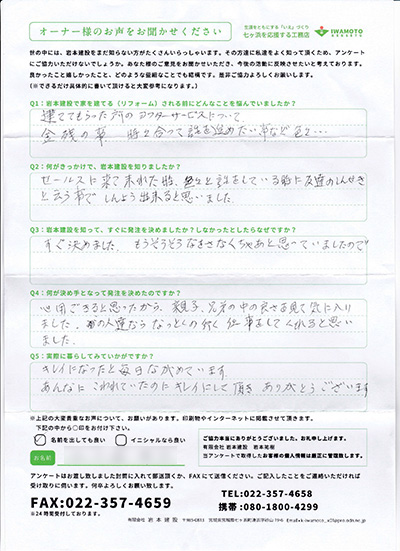 オーナー様のお声をお聞かせください
生涯をともにする「いえ」づくり
七ヶ浜を応援する工務店
IWAMOTO
世の中には、岩本建設をまだ知らない方がたくさんいらっしゃいます。その方達に私達をよく知って頂くため、アンケート
にご協力いただけないでしょうか。あなた様のご意見をお聞かせいただき、今後の活動に反映させたいと考えております。
良かったこと嬉しかったこと、どのような些細なことでも結構です。是非ご協力よろしくお願いします。
（※できるだけ具体的に書いて頂けると大変参考になります。）
Q1：岩本建設で家を建てる（リフォーム）される前にどんなことを悩んでいましたか？
建ててもらった所のアフターサービスについて
金銭の事、 時と合って話を進めたい事など色々…
Q2：何がきっかけで、岩本建設を知りましたか？
セールスに来て来れた時、色々と話をしている時に友達のしんせき
と云う事で しんよう出来ると思いました。
Q3：岩本建設を知って、すぐに発注を決めましたか？しなかったとしたらなぜですか？
すぐ決めました。 もうそろそろなおさなくちゃあと思っていましたので
Q4：何が決め手となって発注を決めたのですか？
心用できると思ったから、親子、兄弟の中の良さを見て気に入り
ました。 の人達なら なっとくの行く 仕事をしてくれると思い
ました。
Q5：実際に暮らしてみていかがですか？
キレイになったと毎日ながめています。
あんなに こわれていたのに キレイにして頂き ありがとうございます
※上記の大変貴重なお声について、お願いがあります。印刷物やインターネットに掲載させて頂きます。
下記の中から〇印をお付け下さい。
名前を出しても良い
イニシャルなら良い
お名前
ご協力本当にありがとうございました。お礼申し上げます。
有限会社 岩本建設 岩本祐樹
当アンケートで取得したお客様の個人情報は厳正に管理致します。
アンケートはお渡し致しました封筒に入れて郵送頂くか、FAX にて送信ください。ご記入したことをご連絡いただければ
受け取りに伺います。何卒よろしくお願い致します。
FAX:022-357-4659
※24時間受付しております。
TEL:022-357-4658
携帯:080-1800-4299
有限会社 岩本建設